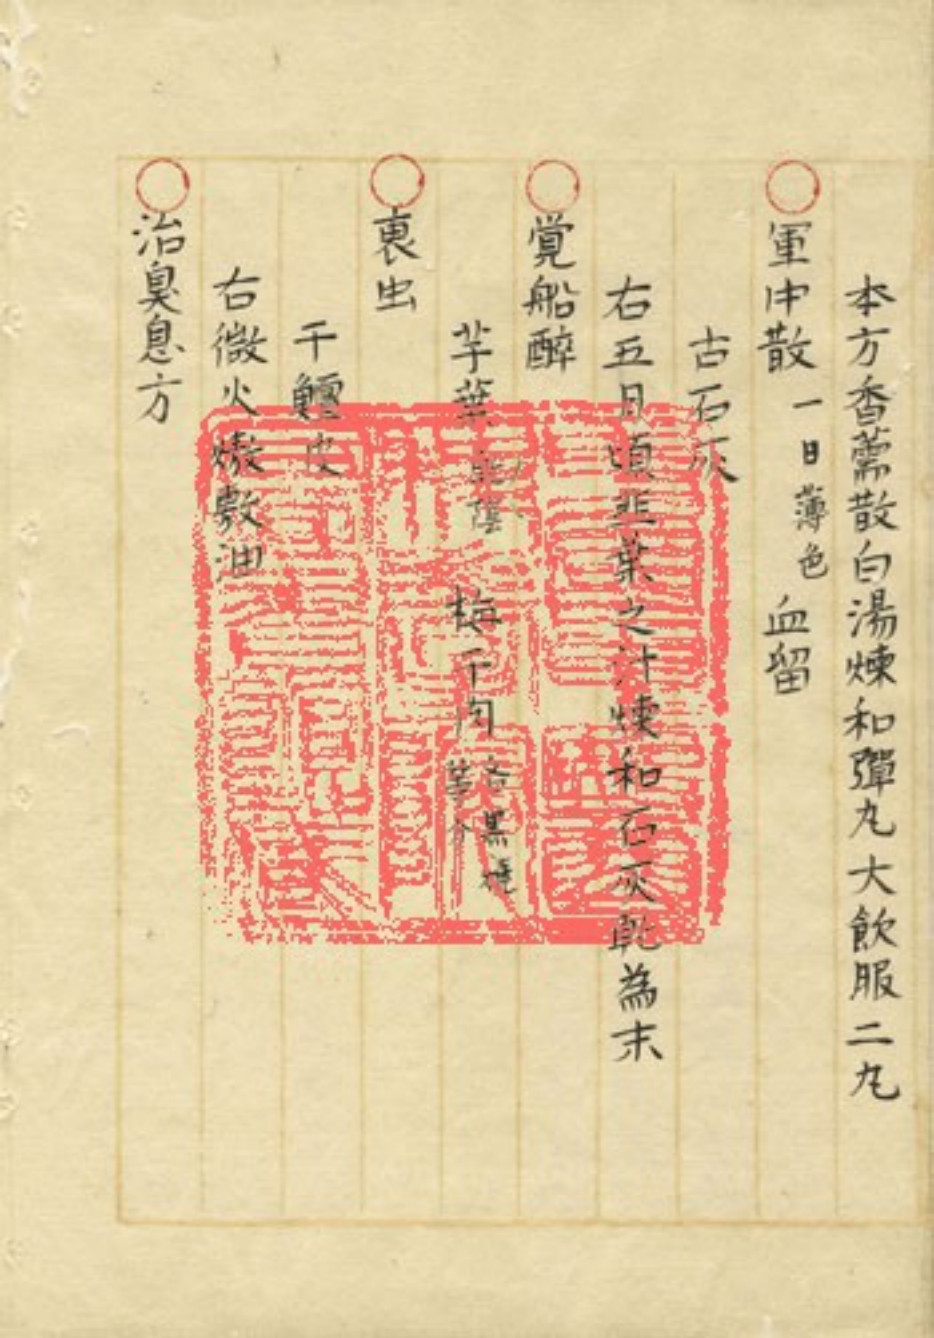 本方香薷散白湯煉和彈丸大飲服二丸
○軍中散 一日薄色 血留
古石灰
右五月頃韭葉之汁煉和石灰乾為末
○覚船醉
芋葉 陰 梅干肉 各黒焼等分
○裏虫
干鱣皮
右微火燉敷油
○治臭息方